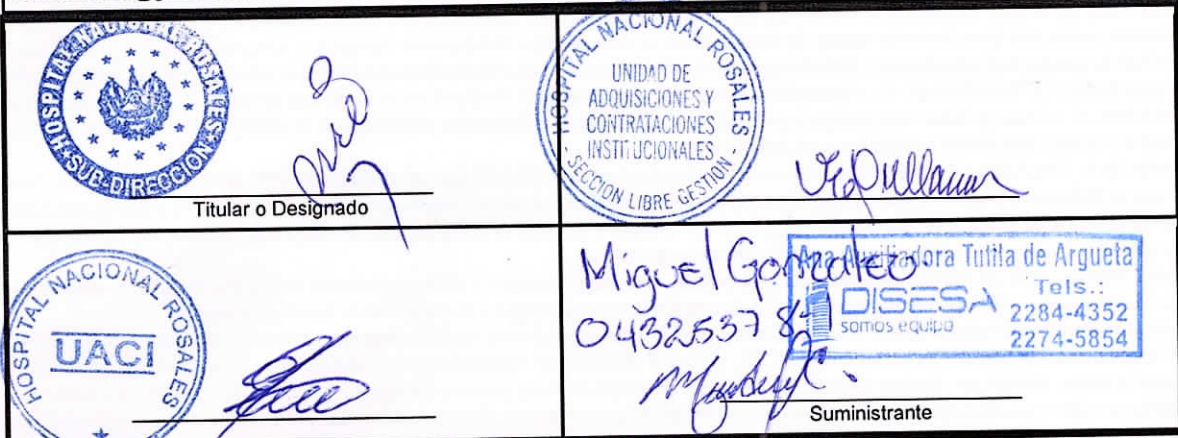 HOSPITAL NACIONAL ROSALES
SUB-DIRECCION
Titular o Designado
HOSPITAL NACIONAL ROSALES
UNIDAD DE
ADQUISICIONES Y
CONTRATACIONES
INSTITUCIONALES
- SECCION LIBRE GESTION -
HOSPITAL NACIONAL ROSALES
UACI
Miguel Gonzalez.
04325378-1
Ana Auxiliadora Tutila de Argueta
DISESA
somos equipo
Tels.:
2284-4352
2274-5854
Suministrante